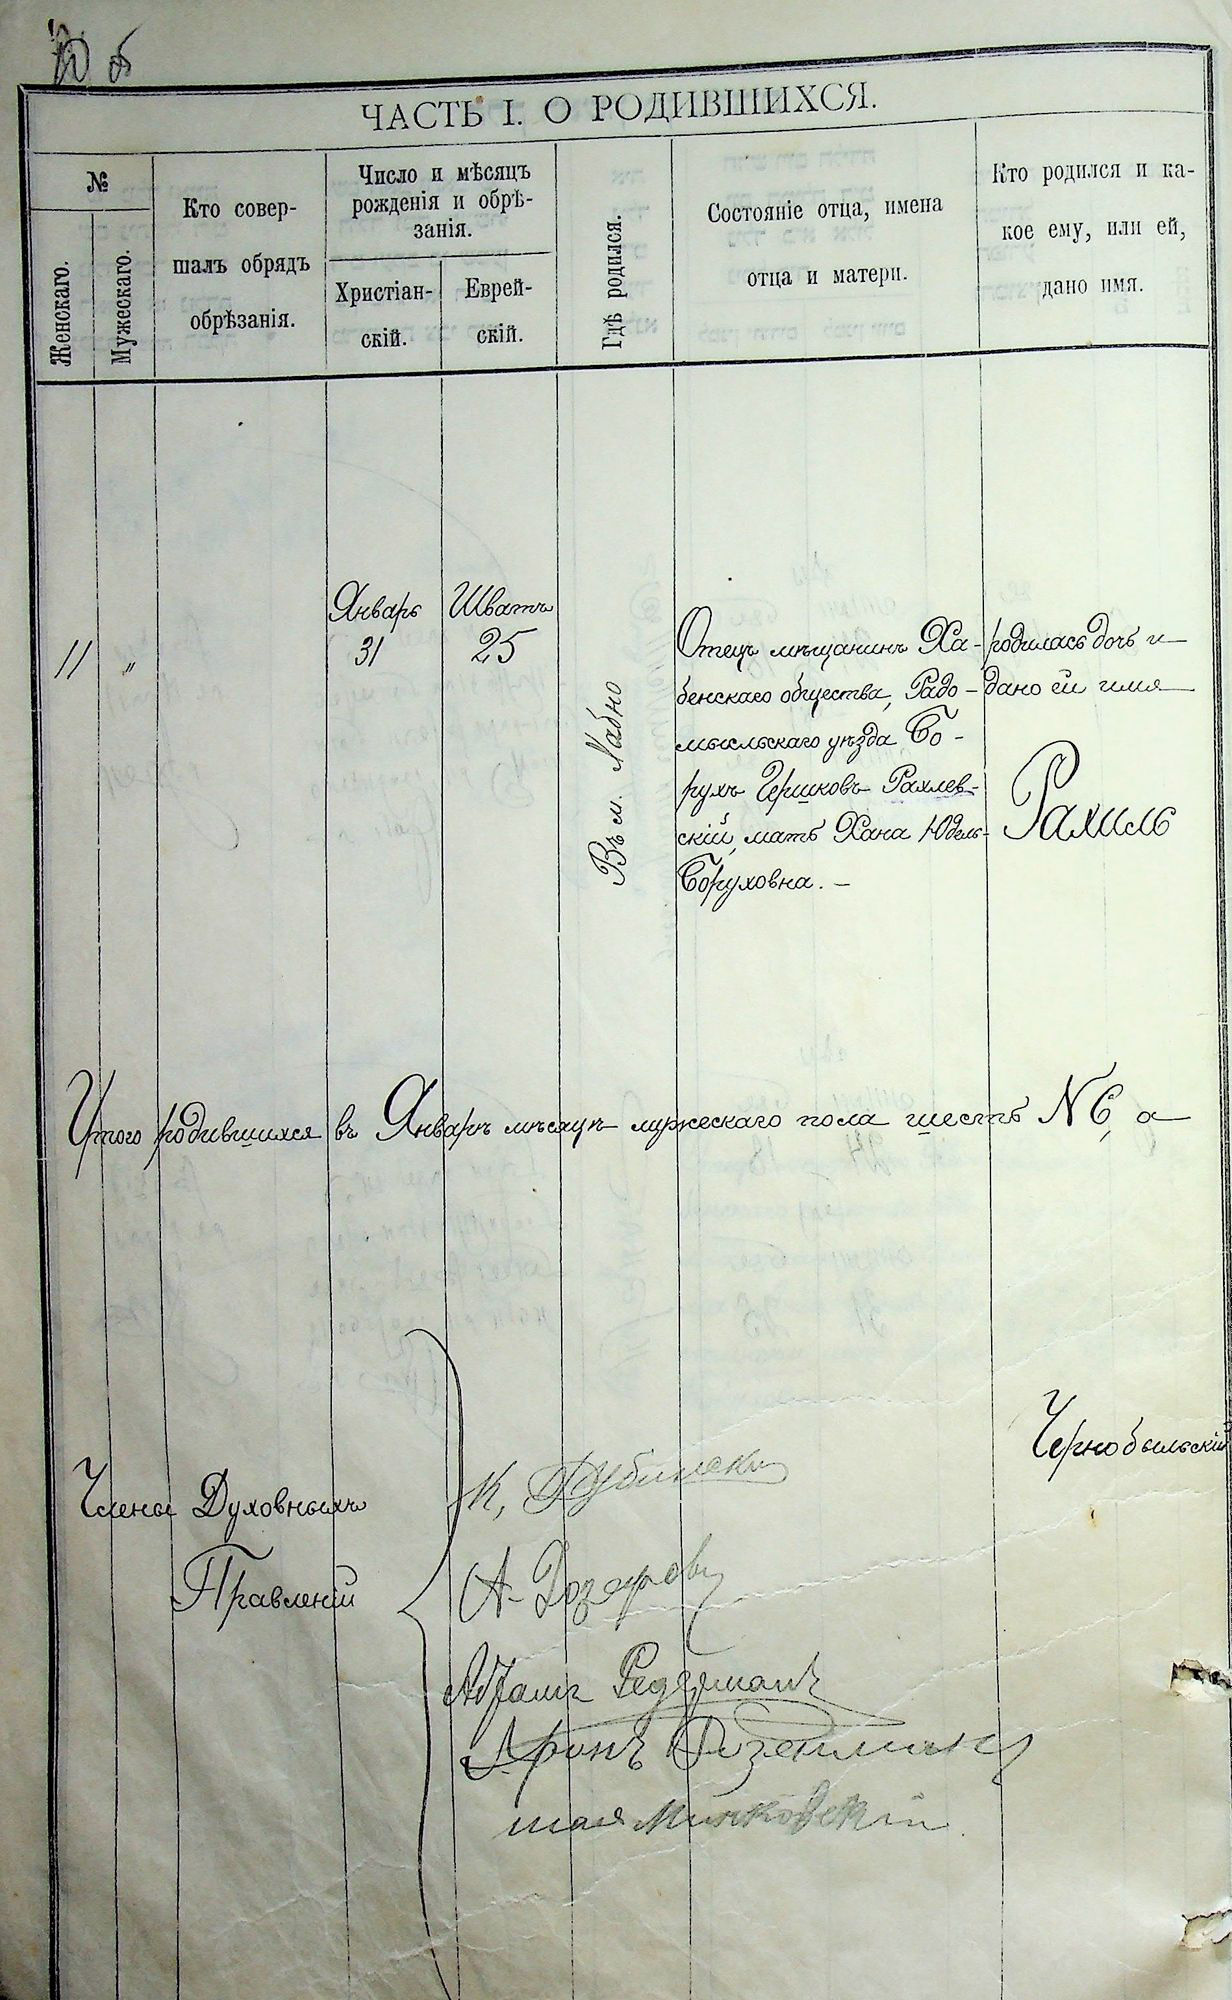 ЧАСТЬ I. О РОДИВШИХСЯ.
№
Женскаго.
Мужескаго.
Кто совер-
шалъ обрядъ
обрѣзанія.
Число и мѣсяцъ
рожденія и обрѣ-
занія.
Христіан-
скій.
Еврей-
скій.
Гдѣ родился.
Состояніе отца, имена
отца и матери.
Кто родился и ка-
кое ему, или ей,
дано имя.
11 „
Январь
31
Шватъ
25
Въ м.
Отецъ мѣщанинъ Ха-
бенскаго общества, Радо-
мысльскаго уѣзда Бо-
рухъ Гершковъ Рахлев-
скій, мать Хана Юдель-
Боруховна. –
родилась дочь и
дано ей имя
Рахиль
Итого родившихся въ Январѣ мѣсяцѣ мужескаго пола шесть N 6, а
Чернобыльскій
Члены Духовныхъ
Правленій
К,
А-
Абрамъ
Аронъ
Шая Минковскій